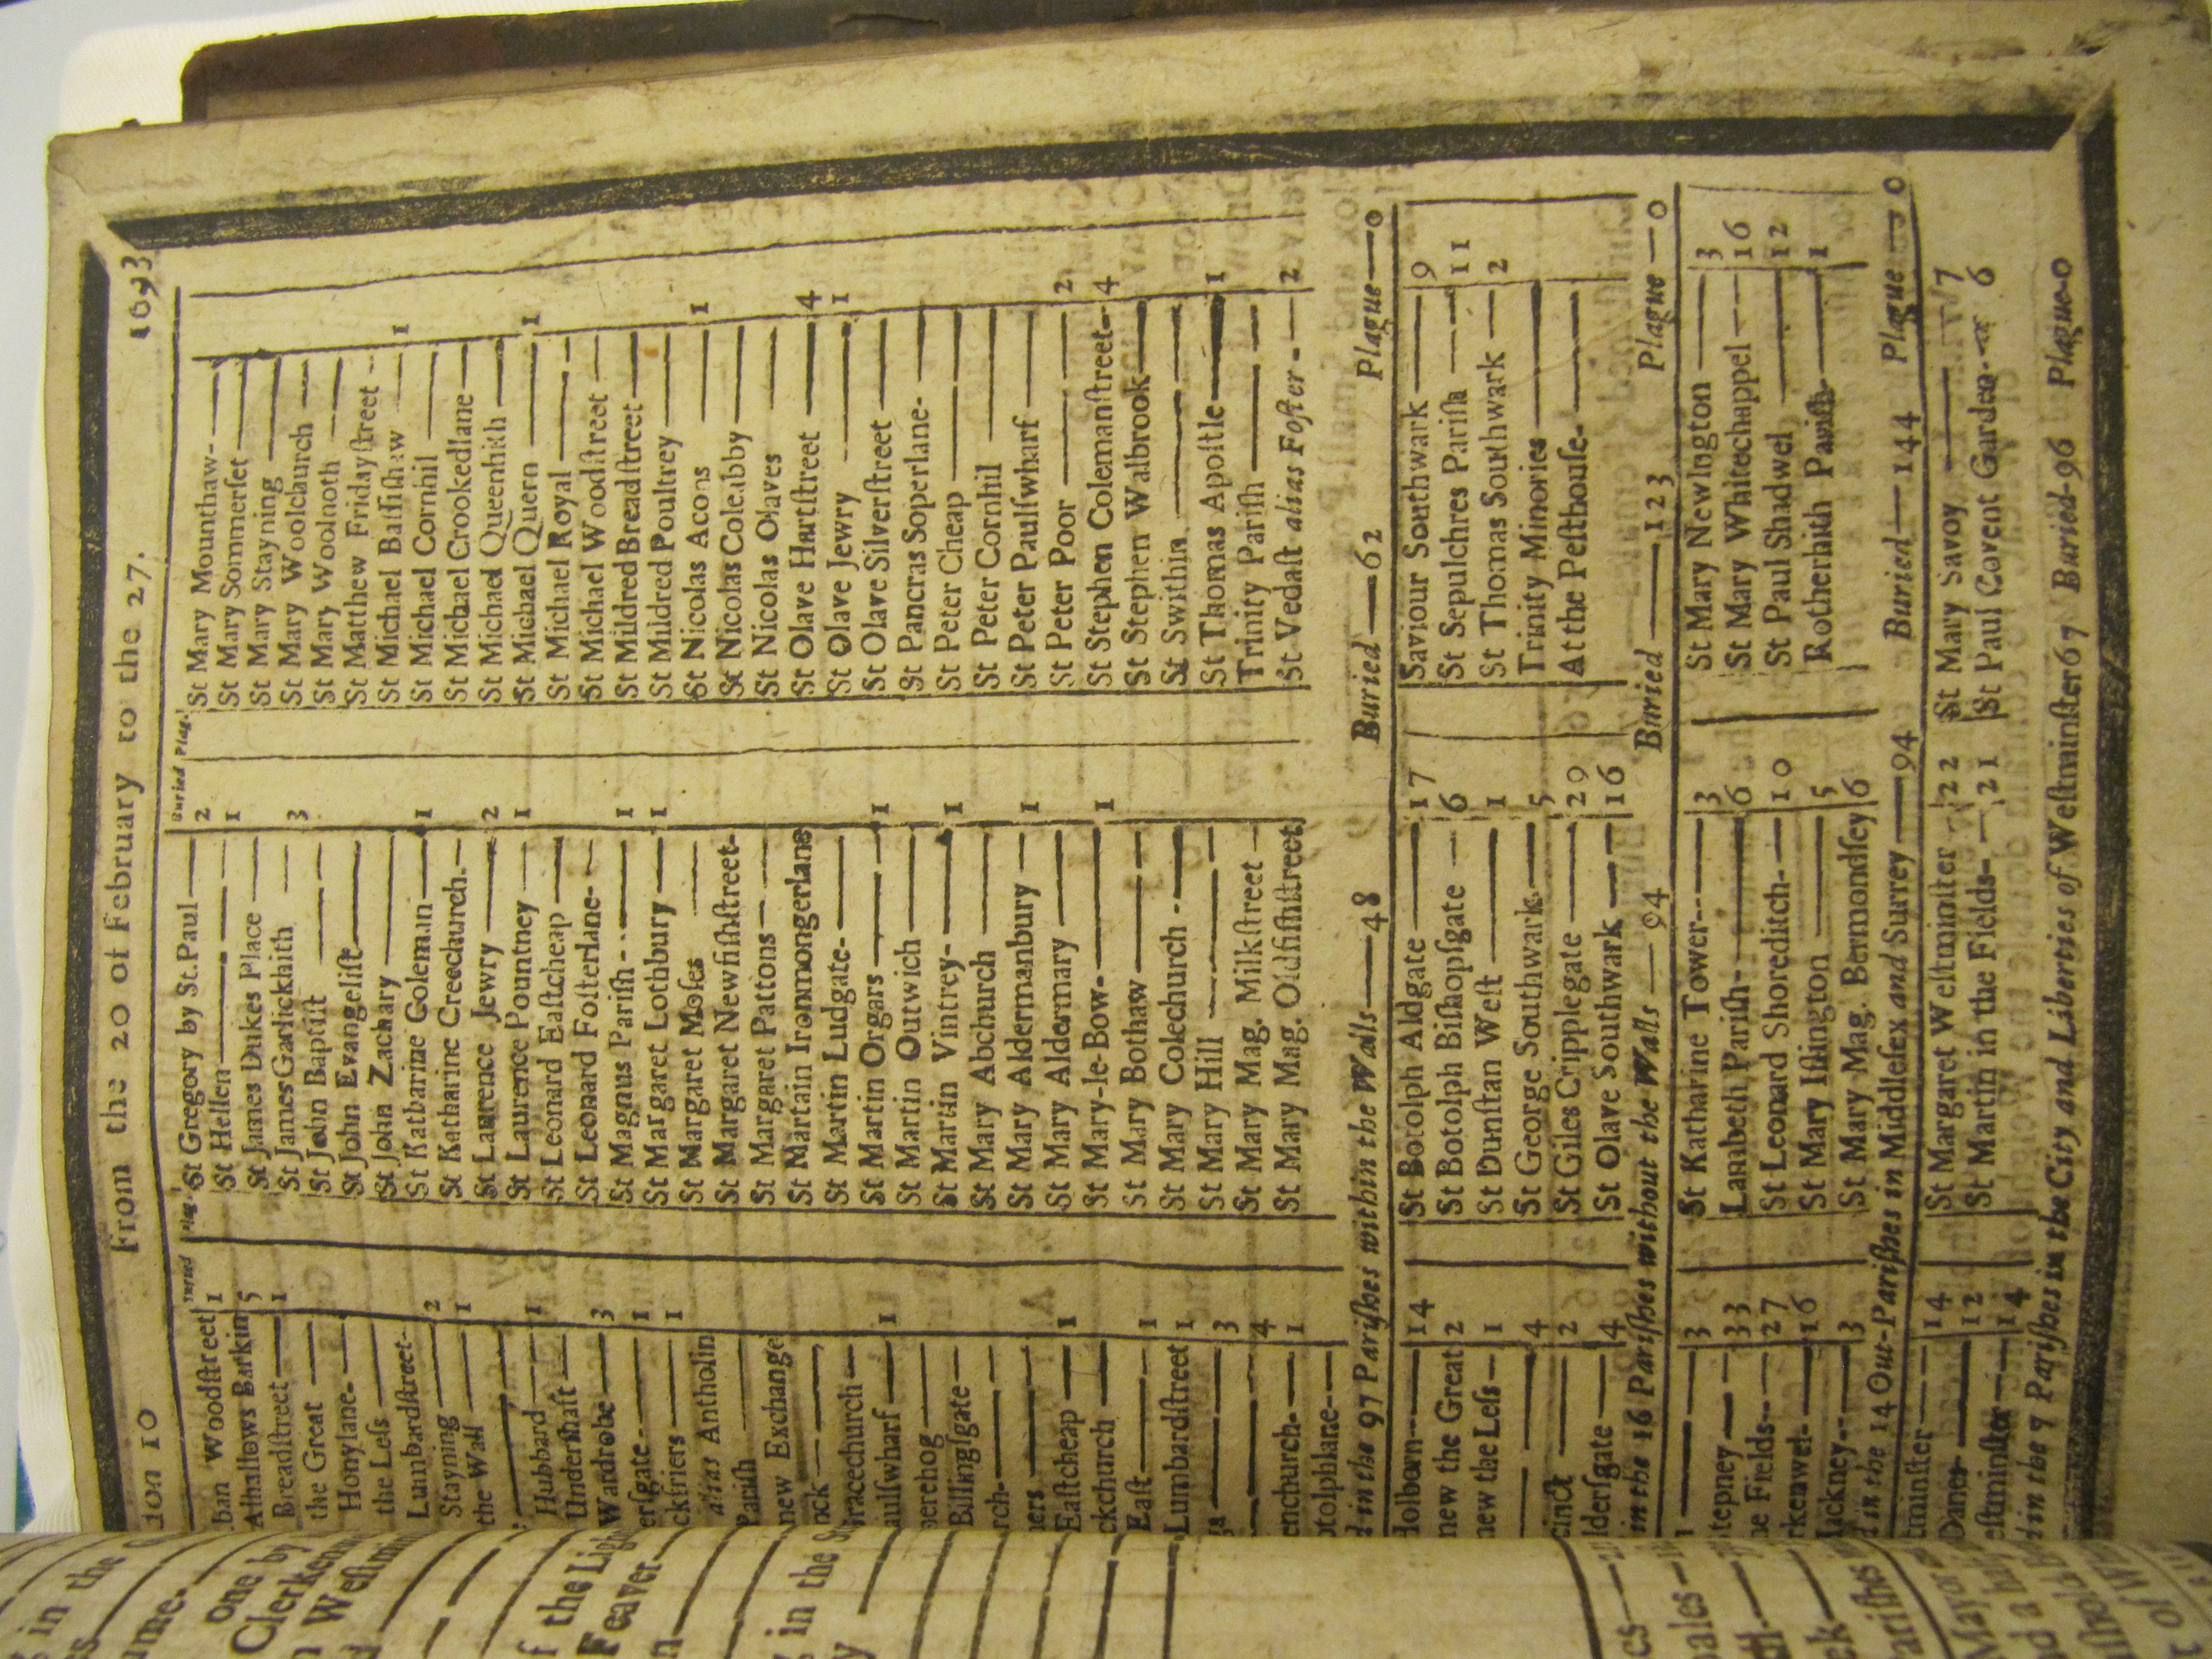 ion 10 From the 20 of February to the 27. 1693
Buried Plag.
ban Woodſtreet 1
Alhallows Barkin 5
Breadſtreet 1
the Great
Honylane
the Leſs
Lumbardſtreet 2
Stayning 1
the Wall
Hubbard 1
Underſhaft
Wardrobe 3
erſgate 1
ckfriers 1
alias Antholin
Pariſh
new Exchange
nck
Gracechurch
aulſwharf 1
nerehog
Billingſgate
rch
ners
Eaſtcheap 1
ckchurch
Eaſt 1
Lumbardſtreet 1
3
4
enchurch 1
otolphlane
St Gregory by St.Paul 2
St Hellen 1
St James Dukes Place
St James Garlickhith 3
St John Baptiſt
St John Evangeliſt
St John Zachary
St Katharine Coleman 1
St Katharine Creechurch
St Laurence Jewry 2
St Laurence Pountney 1
St Leonard Eaſtcheap
St Leonard Foſterlane
St Magnus Pariſh 1
St Margaret Lothbury 1
St Margaret Moſes
St Margaret Newfiſhſtreet
St Margaret Pattons
St Martain Ironmongerlane
St Martin Ludgate
St Martin Orgars 1
St Martin Outwich
St Martin Vintrey 1
St Mary Abchurch
St Mary Aldermanbury 1
St Mary Aldermary
St Mary-le-Bow 1
St Mary Bothaw
St Mary Colechurch
St Mary Hill
St Mary Mag. Milkſtreet
St Mary Mag. Oldfiſhſtreet
St Mary Mounthaw
St Mary Sommerſet
St Mary Stayning
St Mary Woolchurch
St Mary Woolnoth
St Matthew Fridayſtreet
St Michael Baſſiſhaw 1
St Michael Cornhil
St Michael Crookedlane
St Michael Queenhith
St Michael Quern 1
St Michael Royal
St Michael Woodſtreet
St Mildred Breadſtreet
St Mildred Poultrey
St Nicolas Acons 1
St Nicolas Coleabby
St Nicolas Olaves
St Olave Hartſtreet 4
St Olave Jewry 1
St Olave Silverſtreet
St Pancras Soperlane
St Peter Cheap
St Peter Cornhil
St Peter Paulſwharf
St Peter Poor 2
St Stephen Colemanſtreet 4
St Stephen Walbrook
St Swithin
St Thomas Apoſtle 1
Trinity Pariſh
St Vedaſt alias Foſter 2
d in the 97 Pariſhes within the Walls 48 Buried 62 Plague 0
Holborn 14
new the Great 2
new the Leſs 1
4
cinct 2
lderſgate 4
St Botolph Aldgate 17
St Botolph Biſhopſgate 6
St Dunſtan Weſt 1
St George Southwark 5
St Giles Cripplegate 29
St Olave Southwark 16
Saviour Southwark 9
St Sepulchres Pariſh 11
St Thomas Southwark 2
Trinity Minories
At the Peſthouſe
in the 16 Pariſhes without the Walls 94 Buried 123 Plague 0
3
tepney 33
he Fields 27
rkenwel 16
Hackney 3
St Katharine Tower 3
Lambeth Pariſh 6
St Leonard Shoreditch 10
St Mary Iſlington 5
St Mary Mag. Bermondſey 6
St Mary Newington 3
St Mary Whitechappel 16
St Paul Shadwel 12
Rotherhith Pariſh 1
d in the 14 Out-Pariſhes in Middleſex and Surrey 94 Buried 144 Plague 0
tminſter 14
Danes 12
eſtminſter 14
St Margaret Weſtminſter 22
St Martin in the Fields 21
St Mary Savoy 7
St Paul Covent Garden 6
d in the 7 Pariſhes in the City and Liberties of Weſtminſter 67 Buried 96 Plague 0
in the
one by
Clerken
Weſtmin
f the Ligh
Feaver
in the
Pariſhes
Mayor